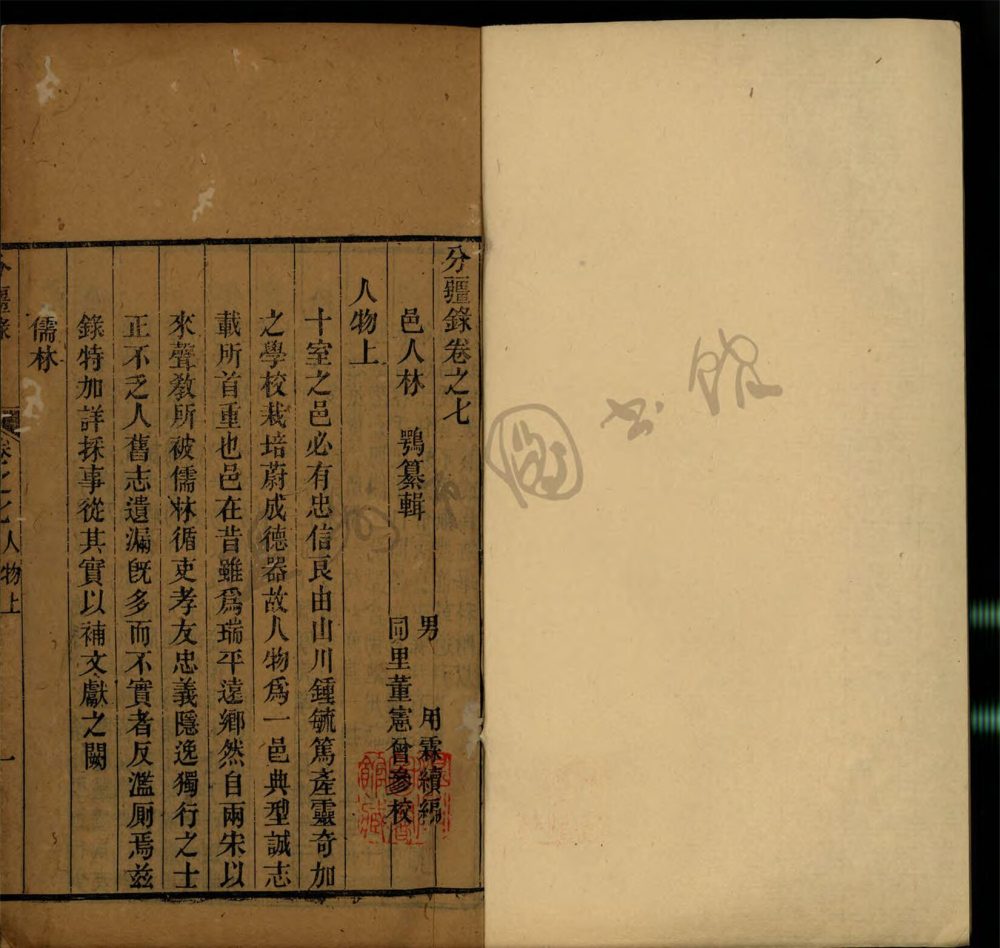 分疆錄卷之七
邑人林 鶚纂輯
男 用霖續編
同里董憲曾參校
人物上
十室之邑必有忠信良由山川鍾毓篤產靈奇加
之學校栽培蔚成德器故人物爲一邑典型誠志
載所首重也邑在昔雖爲瑞平遠鄉然自兩宋以
來聲敎所被儒林循吏孝友忠義隱逸獨行之士
正不乏人舊志遺漏旣多而不實者反濫厠焉兹
錄特加詳採事從其實以補文獻之闕
儒林
分疆錄
卷之七人物上
一
圖書館